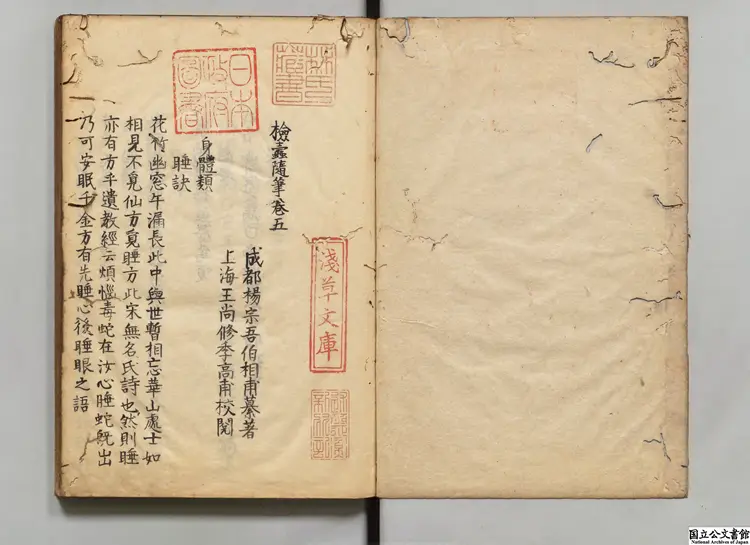 檢蠹隨筆卷五
成都楊宗吾伯相甫纂著
上海王尚修季高甫校閱
身體類
睡訣
花竹幽窓午漏長此中與世暫相忘華山處士如
相見不覓仙方覓睡方此宋無名氏詩也然則睡
亦有方乎遺教經云煩惱毒蛇在汝心睡蛇既出
乃可安眠千金方有先睡心後睡眼之語
日本
政府
圖書
林氏
藏書
淺草文庫
国立公文書館
National Archives of Japan